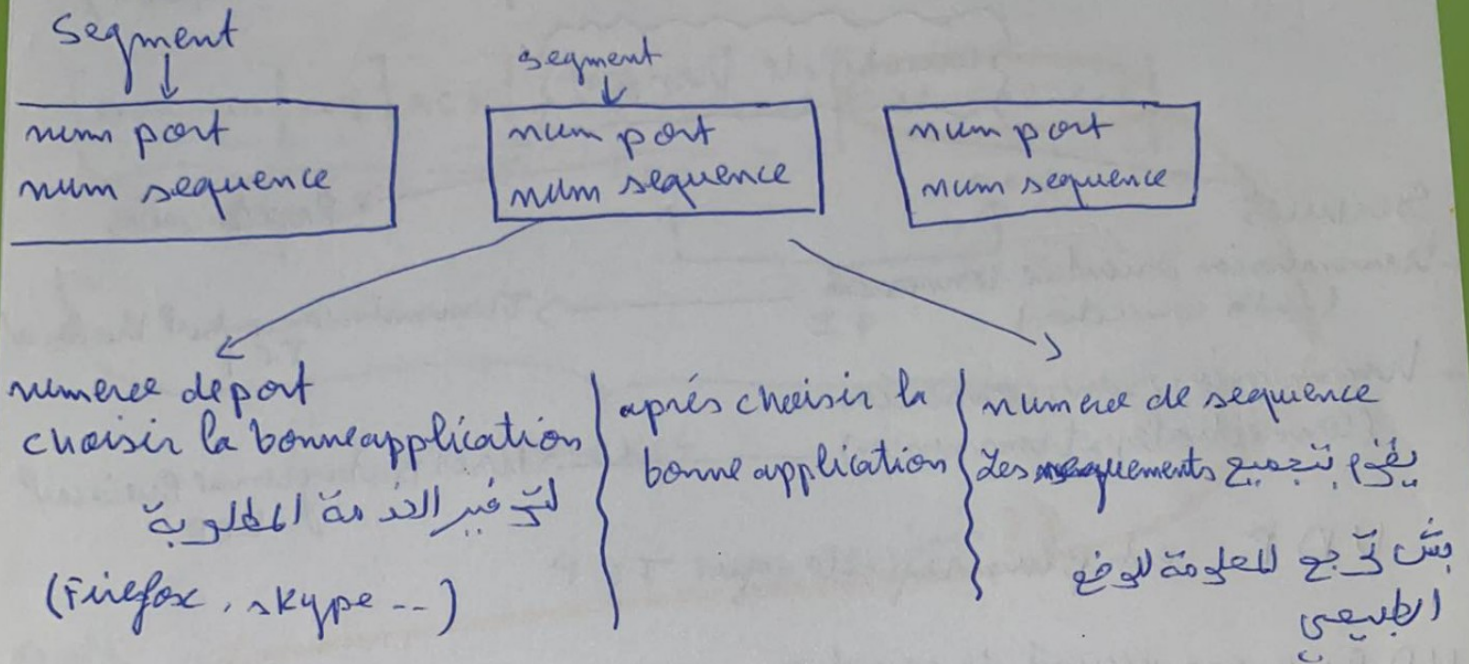 Segment
segment
num port
num sequence
num port
num sequence
num port
num sequence
numeree de port
choisir la bonne application
لتوفير الخدمة المطلوبة
(Firefox, skype --)
aprés choisir la
bonne application
numeree de sequence
يقوم بتجميع Les seguements
بش ترجع المعلومة للوضع
الطبيعي